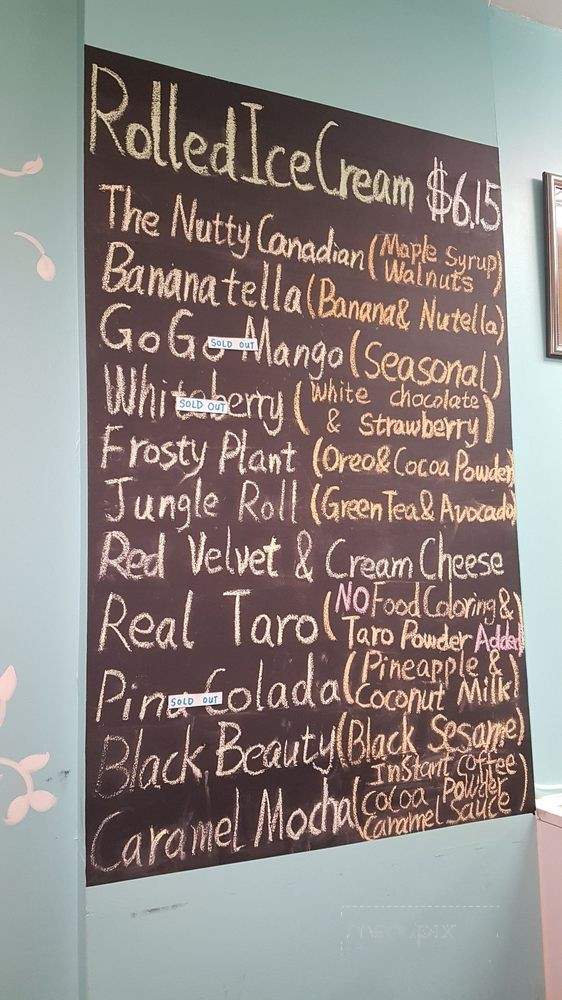 Rolled Ice Cream $6.15
The Nutty Canadian (Maple Syrup
Walnuts)
Bananatella (Banana & Nutella)
GoGo Mango (Seasonal)
SOLD OUT
Whiteberry (White chocolate
& Strawberry)
SOLD OUT
Frosty Plant (Oreo & Cocoa Powder)
Jungle Roll (Green Tea & Avocado)
Red Velvet & Cream Cheese
Real Taro (NO Food Coloring &
Taro Powder Added)
Pina Colada (Pineapple &
Coconut Milk)
SOLD OUT
Black Beauty (Black Sesame)
Caramel Mocha (Instant Coffee
Cocoa Powder
Caramel Sauce)